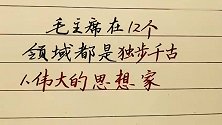 毛主席在12个
领域都是独步千古
人伟大的思想家